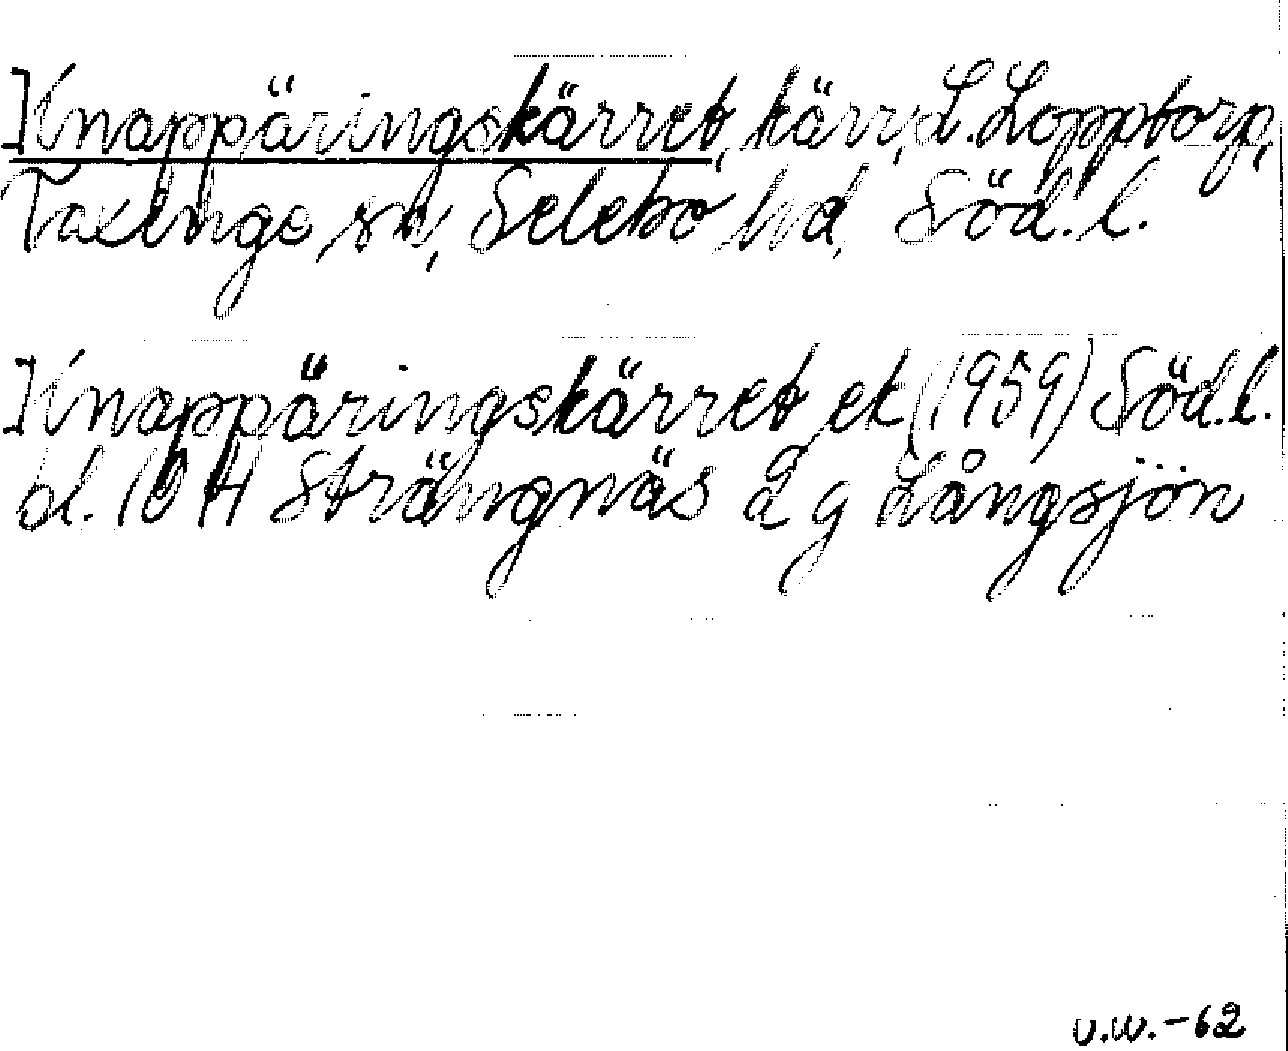 Knappäringskärret, kärr, L. Lopptorp,
Taxinge sn, Selebo hd, Söd. l.
Knappäringskärret ek (1959) Söd. l.
bl. 10 H Strängnäs 2 g Långsjön
U.W. -62